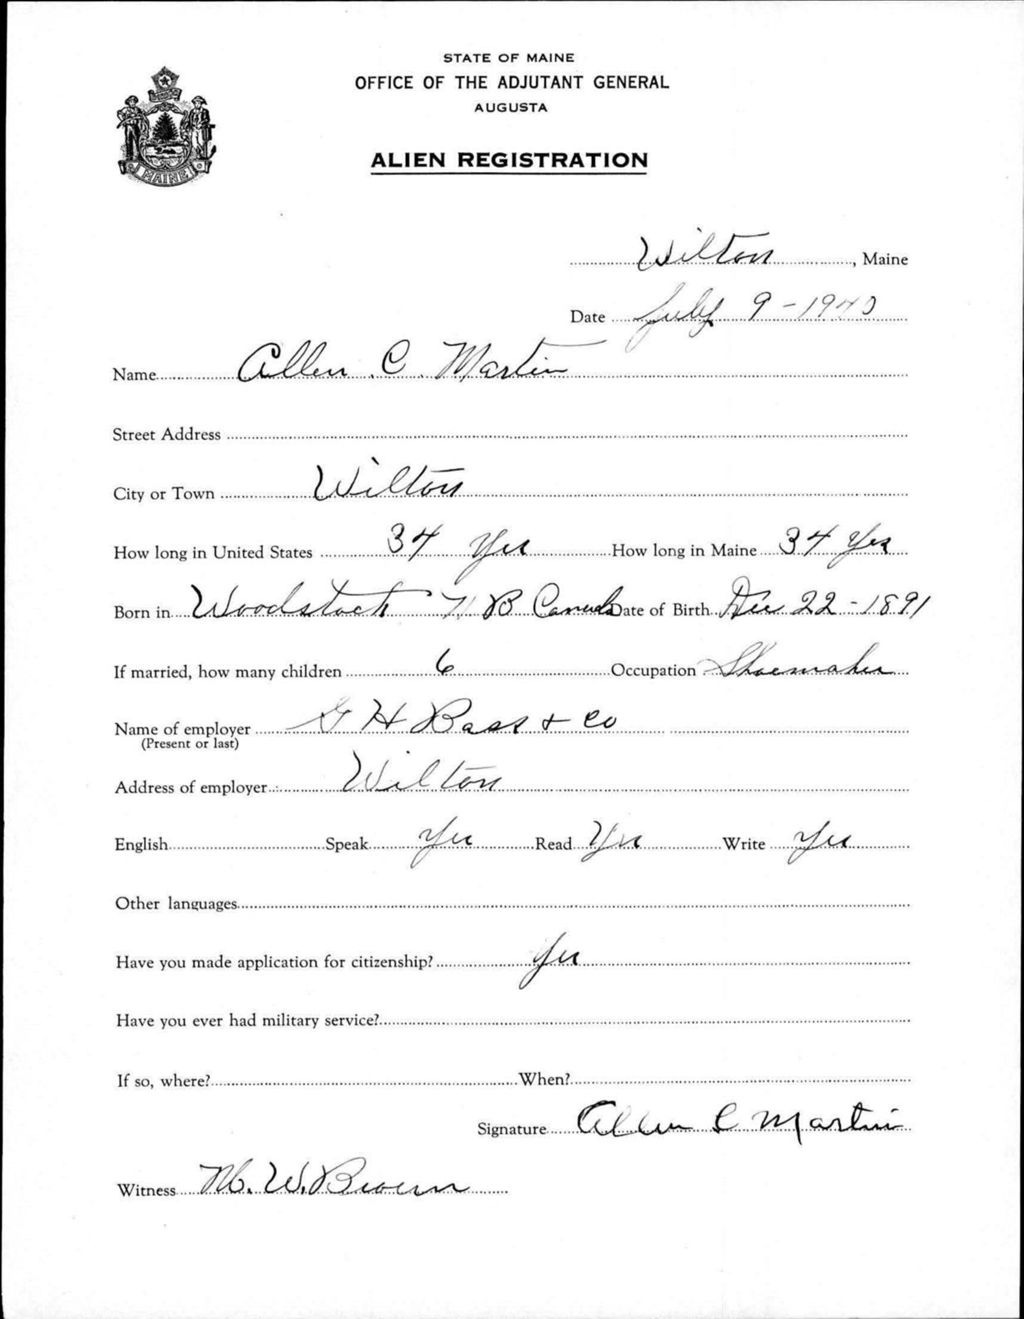 STATE OF MAINE
OFFICE OF THE ADJUTANT GENERAL
AUGUSTA
ALIEN REGISTRATION
MAINE
Wilton, Maine
Date July 9 - 1940
Name Allen C. Martin
Street Address
City or Town Wilton
How long in United States 34 Yrs How long in Maine 34 Yrs
Born in Woodstock N B Canada Date of Birth Dec 22 - 1891
If married, how many children 6 Occupation Shoemaker
Name of employer G H Bass + Co
(Present or last)
Address of employer Wilton
English Speak Yes Read Yes Write Yes
Other languages
Have you made application for citizenship? Yes
Have you ever had military service?
If so, where? When?
Signature Allen C Martin
Witness M. W. Brown